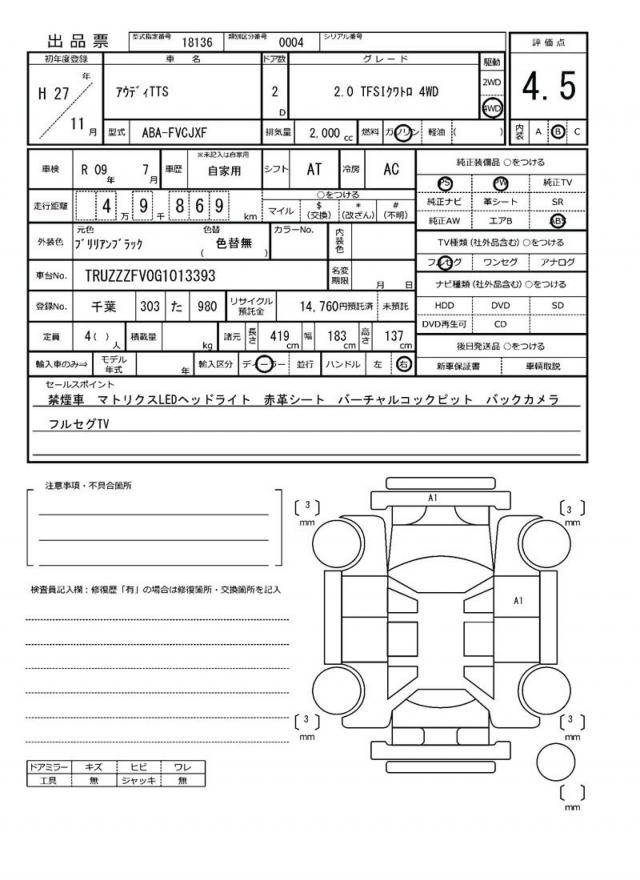 出品票 型式指定番号 18136 類別区分番号 0004 シリアル番号
初年度登録 車名 ドア数 グレード 駆動 評価点
H 27 年 11 月 アウディTTS 2 D 2.0 TFSIクワトロ 4WD 2WD 4WD 4.5
型式 ABA-FVCJXF 排気量 2,000 cc 燃料 ガソリン 軽油 ( ) 内装 A B C
車検 R 09 年 7 月 車歴 ※未記入は自家用 自家用 シフト AT 冷房 AC
走行距離 4 万 9 千 8 6 9 km ○をつける マイル $ (交換) * (改ざん) # (不明)
外装色 元色 ブリリアンブラック 色替 ( 色替無 ) カラーNo. 内装色
車台No. TRUZZZFV0G1013393 名変期限 月 日
登録No. 千葉 303 た 980 リサイクル預託金 14,760円預託済 未預託
定員 4( ) 人 積載量 kg 諸元 長さ 419 cm 幅 183 cm 高さ 137 cm
輸入車のみ⇒ モデル年式 年 輸入区分 ディーラー 並行 ハンドル 左 右
純正装備品 ○をつける
PS PW 純正TV
純正ナビ 革シート SR
純正AW エアB ABS
TV種類 (社外品含む) ○をつける
フルセグ ワンセグ アナログ
ナビ種類 (社外品含む) ○をつける
HDD DVD SD
DVD再生可 CD
後日発送品 ○をつける
新車保証書 車輌取説
セールスポイント
禁煙車 マトリクスLEDヘッドライト 赤革シート バーチャルコックピット バックカメラ
フルセグTV
注意事項・不具合箇所
検査員記入欄：修復歴「有」の場合は修復箇所・交換箇所を記入
ドアミラー キズ ヒビ ワレ
工具 無 ジャッキ 無
〔 3 〕 mm A1 〔 3 〕 mm
A1
〔 3 〕 mm 〔 3 〕 mm
〔 〕 mm